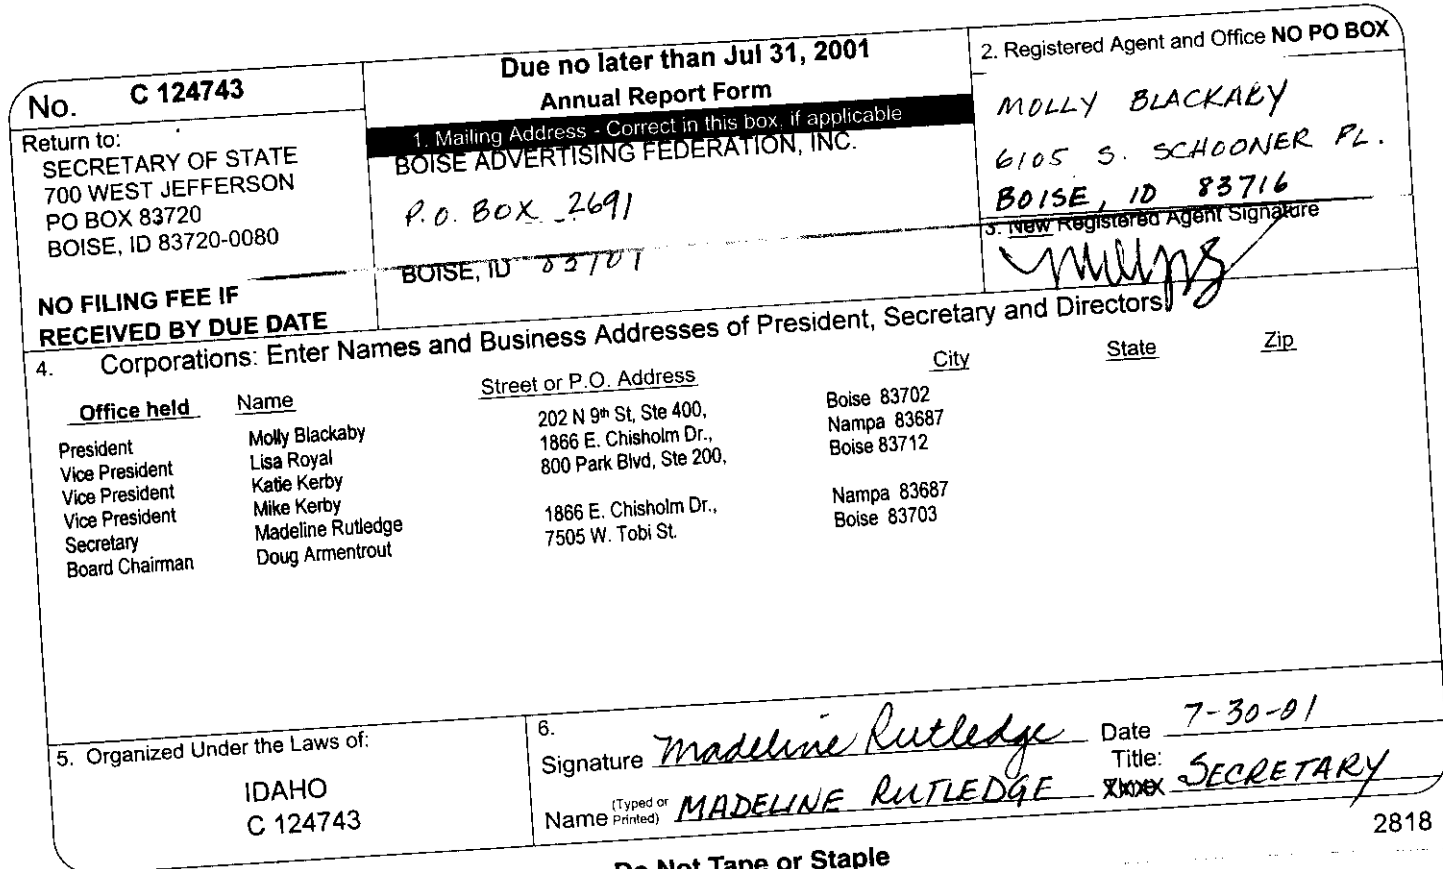 No. C 124743
Return to:
SECRETARY OF STATE
700 WEST JEFFERSON
PO BOX 83720
BOISE, ID 83720-0080
NO FILING FEE IF
RECEIVED BY DUE DATE
Due no later than Jul 31, 2001
Annual Report Form
1. Mailing Address - Correct in this box, if applicable
BOISE ADVERTISING FEDERATION, INC.
P.O. BOX 2691
BOISE, ID 83701
2. Registered Agent and Office NO PO BOX
MOLLY BLACKABY
6105 S. SCHOONER PL.
BOISE, ID 83716
3. New Registered Agent Signature
4. Corporations: Enter Names and Business Addresses of President, Secretary and Directors
Office held Name Street or P.O. Address City State Zip
President Molly Blackaby 202 N 9th St, Ste 400, Boise 83702
Vice President Lisa Royal 1866 E. Chisholm Dr., Nampa 83687
Vice President Katie Kerby 800 Park Blvd, Ste 200, Boise 83712
Vice President Mike Kerby
Secretary Madeline Rutledge 1866 E. Chisholm Dr., Nampa 83687
Board Chairman Doug Armentrout 7505 W. Tobi St. Boise 83703
5. Organized Under the Laws of:
IDAHO
C 124743
6.
Signature Madeline Rutledge Date 7-30-01
Name (Typed or Printed) MADELINE RUTLEDGE Title: SECRETARY
2818
Do Not Tape or Staple